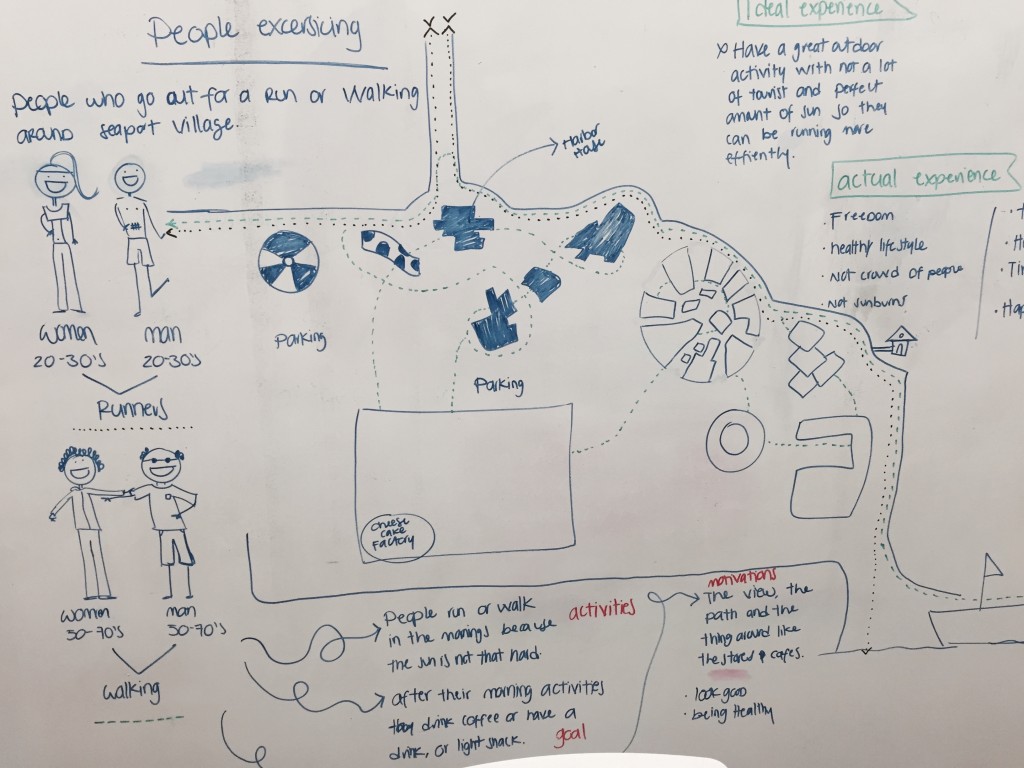 People excersicing
People who go out for a Run or Walking
around seaport Village.
women
20-30's
man
20-30's
Runners
women
50-70's
man
50-70's
walking
Harbor
House
Parking
Parking
Cheese
Cake
Factory
Ideal experience
Have a great outdoor
activity with not a lot
of tourist and perfect
amount of sun so they
can be running more
effiently.
actual experience
Freedom
· healthy lifestyle
· Not crowd of people
· Not sunburns
People run or walk
in the mornings because
the sun is not that hard.
activities
after their morning activities
they drink coffee or have a
drink, or light snack.
goal
motivations
The view, the
path and the
thing around like
the stores & cafes.
· look good
· being Healthy